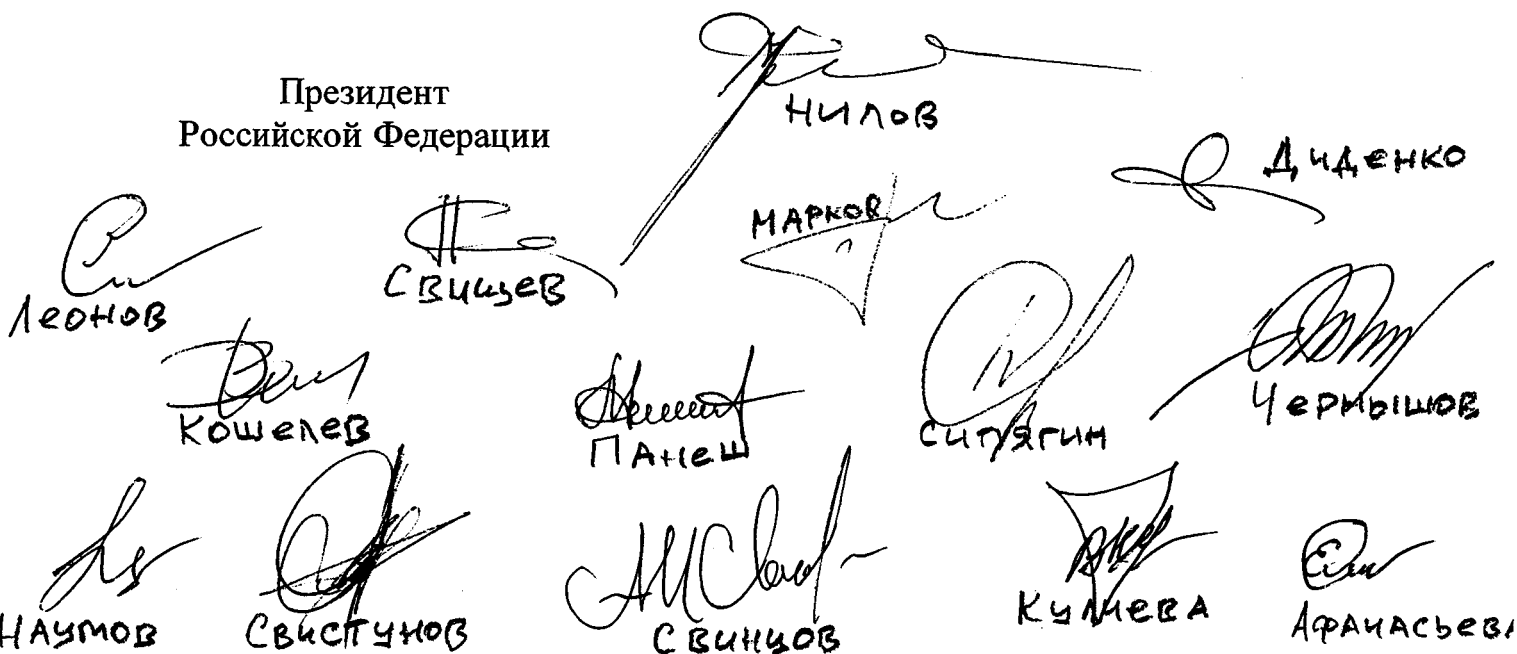 Президент
Российской Федерации
Нилов
Диденко
Марков
Леонов
Свищев
Кошелев
Панеш
Сипягин
Чернышов
Наумов
Свистунов
Свинцов
Кулиева
Афанасьева